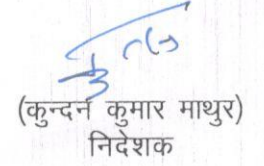 (कुन्दन कुमार माथुर)
निदेशक